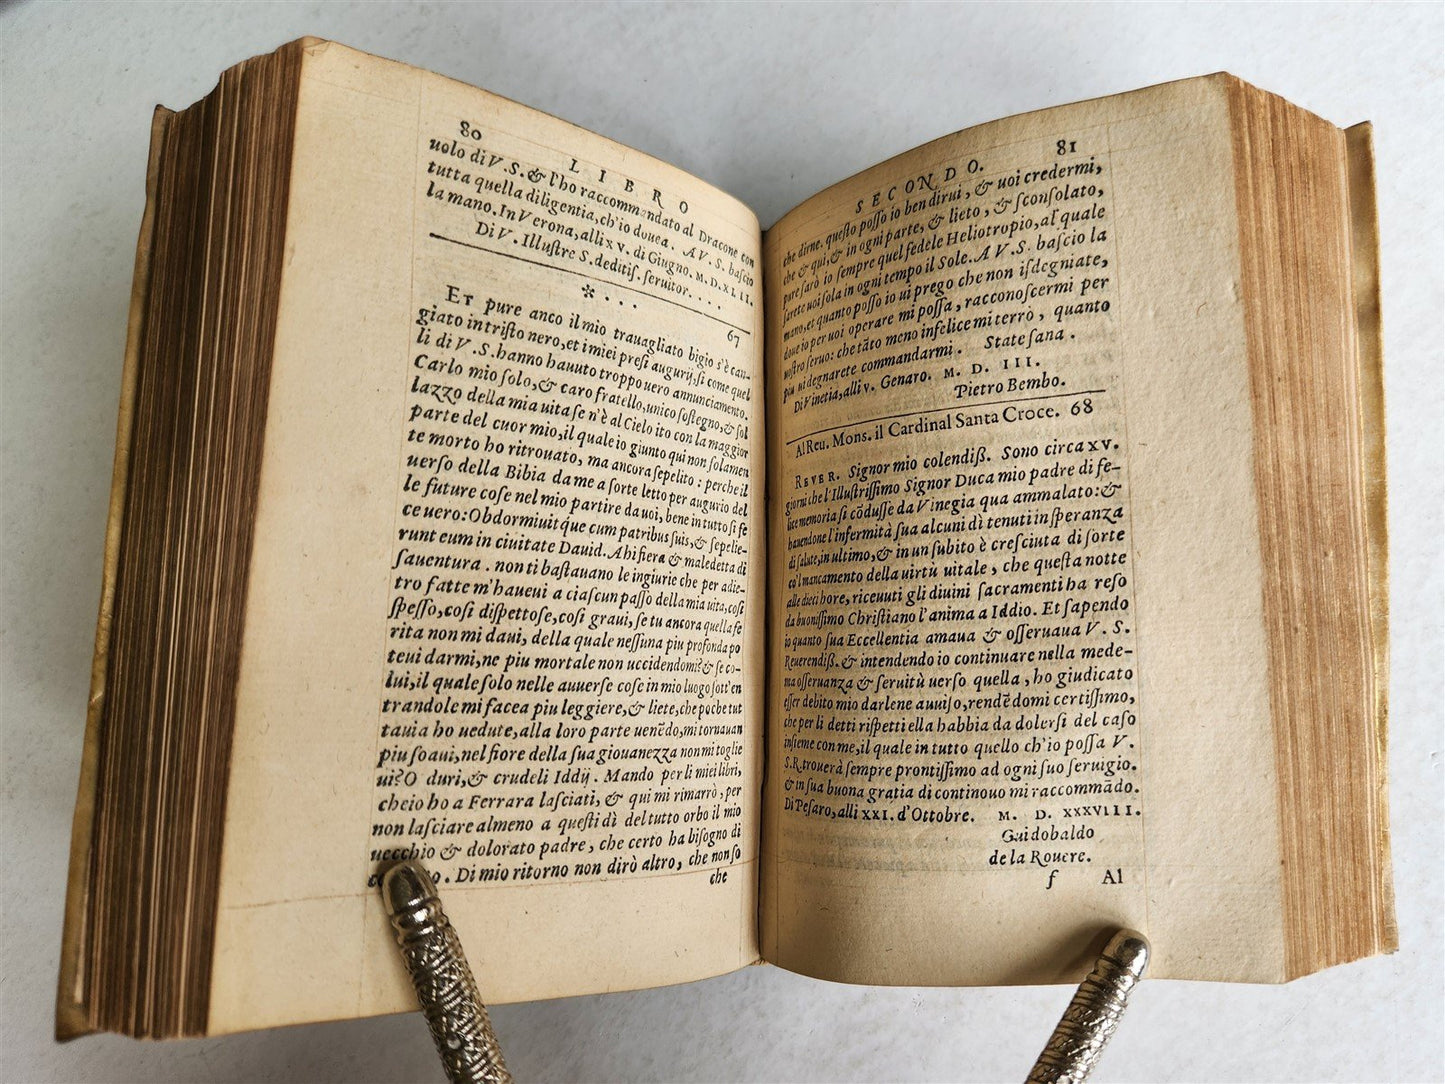 80
LIBRO
uolo di V. S. & l'ho raccommandato al Dracone con
tutta quella diligentia, ch'io douea. A V. S. bascio
la mano. In Verona, alli xv. di Giugno. M. D. XLII.
Di V. Illustre S. deditis. seruitor. . . .
* . . .
67
ET pure anco il mio trauagliato bigio s'è can-
giato in tristo nero, et i miei presi augurij, si come quel
li di V. S. hanno hauuto troppo uero annunciamento.
Carlo mio solo, & caro fratello, unico sostegno, & sol
lazzo della mia uita se n'è al Cielo ito con la maggior
parte del cuor mio, il quale io giunto qui non solamen
te morto ho ritrouato, ma ancora sepelito: perche il
uerso della Bibia da me a sorte letto per augurio del
le future cose nel mio partire da uoi, bene in tutto si fe
ce uero: Obdormiuit que cum patribus suis, & sepelie-
runt eum in ciuitate Dauid. Ahi fiera & maledetta di
sauentura. non ti bastauano le ingiurie che per adie-
tro fatte m'haueui a ciascun passo della mia uita, cosi
spesso, cosi dispettose, cosi graui, se tu ancora quella fe
rita non mi daui, della quale nessuna piu profonda po
teui darmi, ne piu mortale non uccidendomi? & se co-
lui, il quale solo nelle auuerse cose in mio luogo sott'en
trandole mi facea piu leggiere, & liete, che poche tut
tauia ho uedute, alla loro parte uenēdo, mi tornauan
piu soaui, nel fiore della sua giouanezza non mi toglie
ui? O duri, & crudeli Iddij. Mando per li miei libri,
che io ho a Ferrara lasciati, & qui mi rimarrò, per
non lasciare almeno a questi dì del tutto orbo il mio
uecchio & dolorato padre, che certo ha bisogno di
. Di mio ritorno non dirò altro, che non so
che
SECONDO.
81
che dirne. questo posso io ben dirui, & uoi credermi,
che & qui, & in ogni parte, & lieto, & sconsolato,
pure sarò io sempre quel fedele Heliotropio, al quale
sarete uoi sola in ogni tempo il Sole. A V. S. bascio la
mano, et quanto posso io ui prego che non isdegniate,
doue io per uoi operare mi possa, racconoscermi per
uostro seruo: che tāto meno infelice mi terrò, quanto
piu ui degnarete commandarmi. State sana.
Di Vinetia, alli v. Genaro. M. D. III.
Pietro Bembo.
Al Reu. Mons. il Cardinal Santa Croce. 68
REVER. Signor mio colendiß. Sono circa xv.
giorni che l'Illustrissimo Signor Duca mio padre di fe-
lice memoria si cōdusse da Vinegia qua ammalato: &
hauendone l'infermità sua alcuni dì tenuti in speranza
di salute, in ultimo, & in un subito è cresciuta di sorte
co'l mancamento della uirtù uitale, che questa notte
alle dieci hore, riceuuti gli diuini sacramenti ha reso
da buonissimo Christiano l'anima a Iddio. Et sapendo
io quanto sua Eccellentia amaua & osseruaua V. S.
Reuerendiß. & intendendo io continuare nella mede-
ma osseruanza & seruitù uerso quella, ho giudicato
esser debito mio darlene auuiso, rendēdomi certissimo,
che per li detti rispetti ella habbia da dolersi del caso
insieme con me, il quale in tutto quello ch'io possa V.
S. R. trouerà sempre prontissimo ad ogni suo seruigio.
& in sua buona gratia di continouo mi raccommādo.
Di Pesaro, alli XXI. d'Ottobre. M. D. XXXVIII.
Guidobaldo
de la Rouere.
f Al